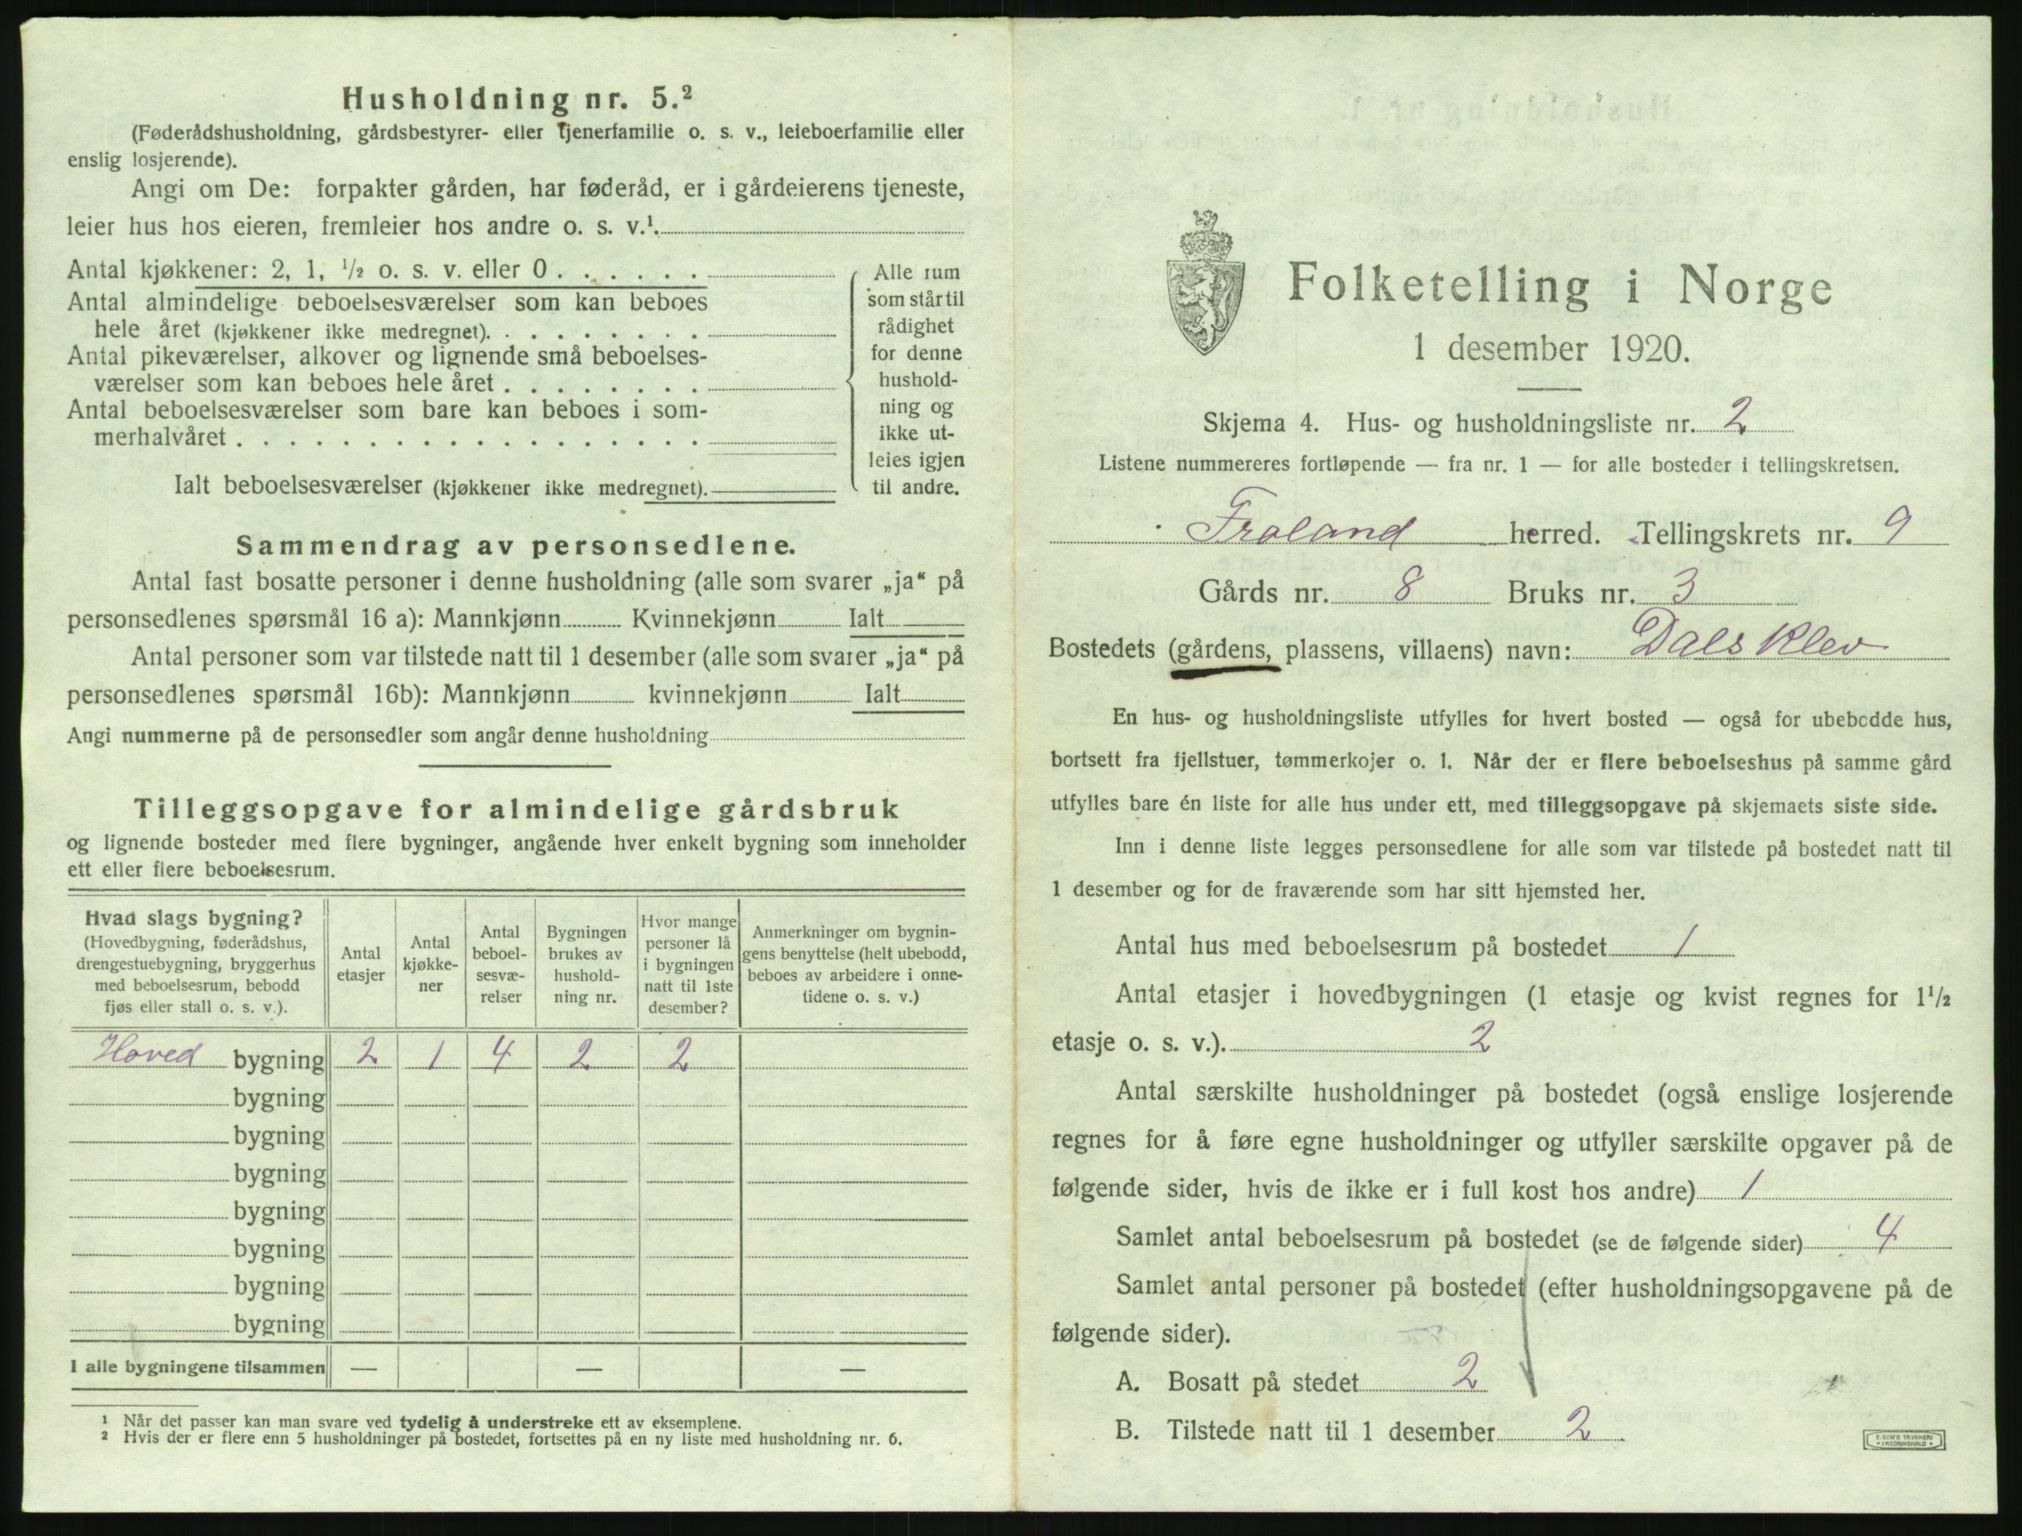 Husholdning nr. 5.²
(Føderådshusholdning, gårdsbestyrer- eller tjenerfamilie o. s. v., leieboerfamilie eller
enslig losjerende).
Angi om De: forpakter gården, har føderåd, er i gårdeierens tjeneste,
leier hus hos eieren, fremleier hos andre o. s. v.¹.
Antal kjøkkener: 2, 1, ½ o. s. v. eller 0 . . . . . .
Antal almindelige beboelsesværelser som kan beboes
hele året (kjøkkener ikke medregnet). . . . . . . . .
Antal pikeværelser, alkover og lignende små beboelses-
værelser som kan beboes hele året . . . . . . . .
Antal beboelsesværelser som bare kan beboes i som-
merhalvåret . . . . . . . . . . . . . . . . . .
Ialt beboelsesværelser (kjøkkener ikke medregnet).
Alle rum
som står til
rådighet
for denne
hushold-
ning og
ikke ut-
leies igjen
til andre.
Sammendrag av personsedlene.
Antal fast bosatte personer i denne husholdning (alle som svarer „ja“ på
personsedlenes spørsmål 16 a): Mannkjønn Kvinnekjønn Ialt
Antal personer som var tilstede natt til 1 desember (alle som svarer „ja“ på
personsedlenes spørsmål 16b): Mannkjønn kvinnekjønn Ialt
Angi nummerne på de personsedler som angår denne husholdning
Tilleggsopgave for almindelige gårdsbruk
og lignende bosteder med flere bygninger, angående hver enkelt bygning som inneholder
ett eller flere beboelsesrum.
Hvad slags bygning?
(Hovedbygning, føderådshus,
drengestuebygning, bryggerhus
med beboelsesrum, bebodd
fjøs eller stall o. s. v.).
Antal
etasjer
Antal
kjøkke-
ner
Antal
beboel-
sesvæ-
relser
Bygningen
brukes av
hushold-
ning nr.
Hvor mange
personer lå
i bygningen
natt til 1ste
desember?
Anmerkninger om bygnin-
gens benyttelse (helt ubebodd,
beboes av arbeidere i onne-
tidene o. s. v.)
Hoved bygning 2 1 4 2 2
bygning
bygning
bygning
bygning
bygning
bygning
bygning
I alle bygningene tilsammen — — —
¹ Når det passer kan man svare ved tydelig å understreke ett av eksemplene.
² Hvis der er flere enn 5 husholdninger på bostedet, fortsettes på en ny liste med husholdning nr. 6.
Folketelling i Norge
1 desember 1920.
Skjema 4. Hus- og husholdningsliste nr. 2
Listene nummereres fortløpende — fra nr. 1 — for alle bosteder i tellingskretsen.
Froland herred. Tellingskrets nr. 9
Gårds nr. 8 Bruks nr. 3
Bostedets (gårdens, plassens, villaens) navn: Dalsklev
En hus- og husholdningsliste utfylles for hvert bosted — også for ubebodde hus,
bortsett fra fjellstuer, tømmerkojer o. l. Når der er flere beboelseshus på samme gård
utfylles bare én liste for alle hus under ett, med tilleggsopgave på skjemaets siste side.
Inn i denne liste legges personsedlene for alle som var tilstede på bostedet natt til
1 desember og for de fraværende som har sitt hjemsted her.
Antal hus med beboelsesrum på bostedet 1
Antal etasjer i hovedbygningen (1 etasje og kvist regnes for 1½
etasje o. s. v.). 2
Antal særskilte husholdninger på bostedet (også enslige losjerende
regnes for å føre egne husholdninger og utfyller særskilte opgaver på de
følgende sider, hvis de ikke er i full kost hos andre) 1
Samlet antal beboelsesrum på bostedet (se de følgende sider) 4
Samlet antal personer på bostedet (efter husholdningsopgavene på de
følgende sider).
A. Bosatt på stedet 2
B. Tilstede natt til 1 desember 2